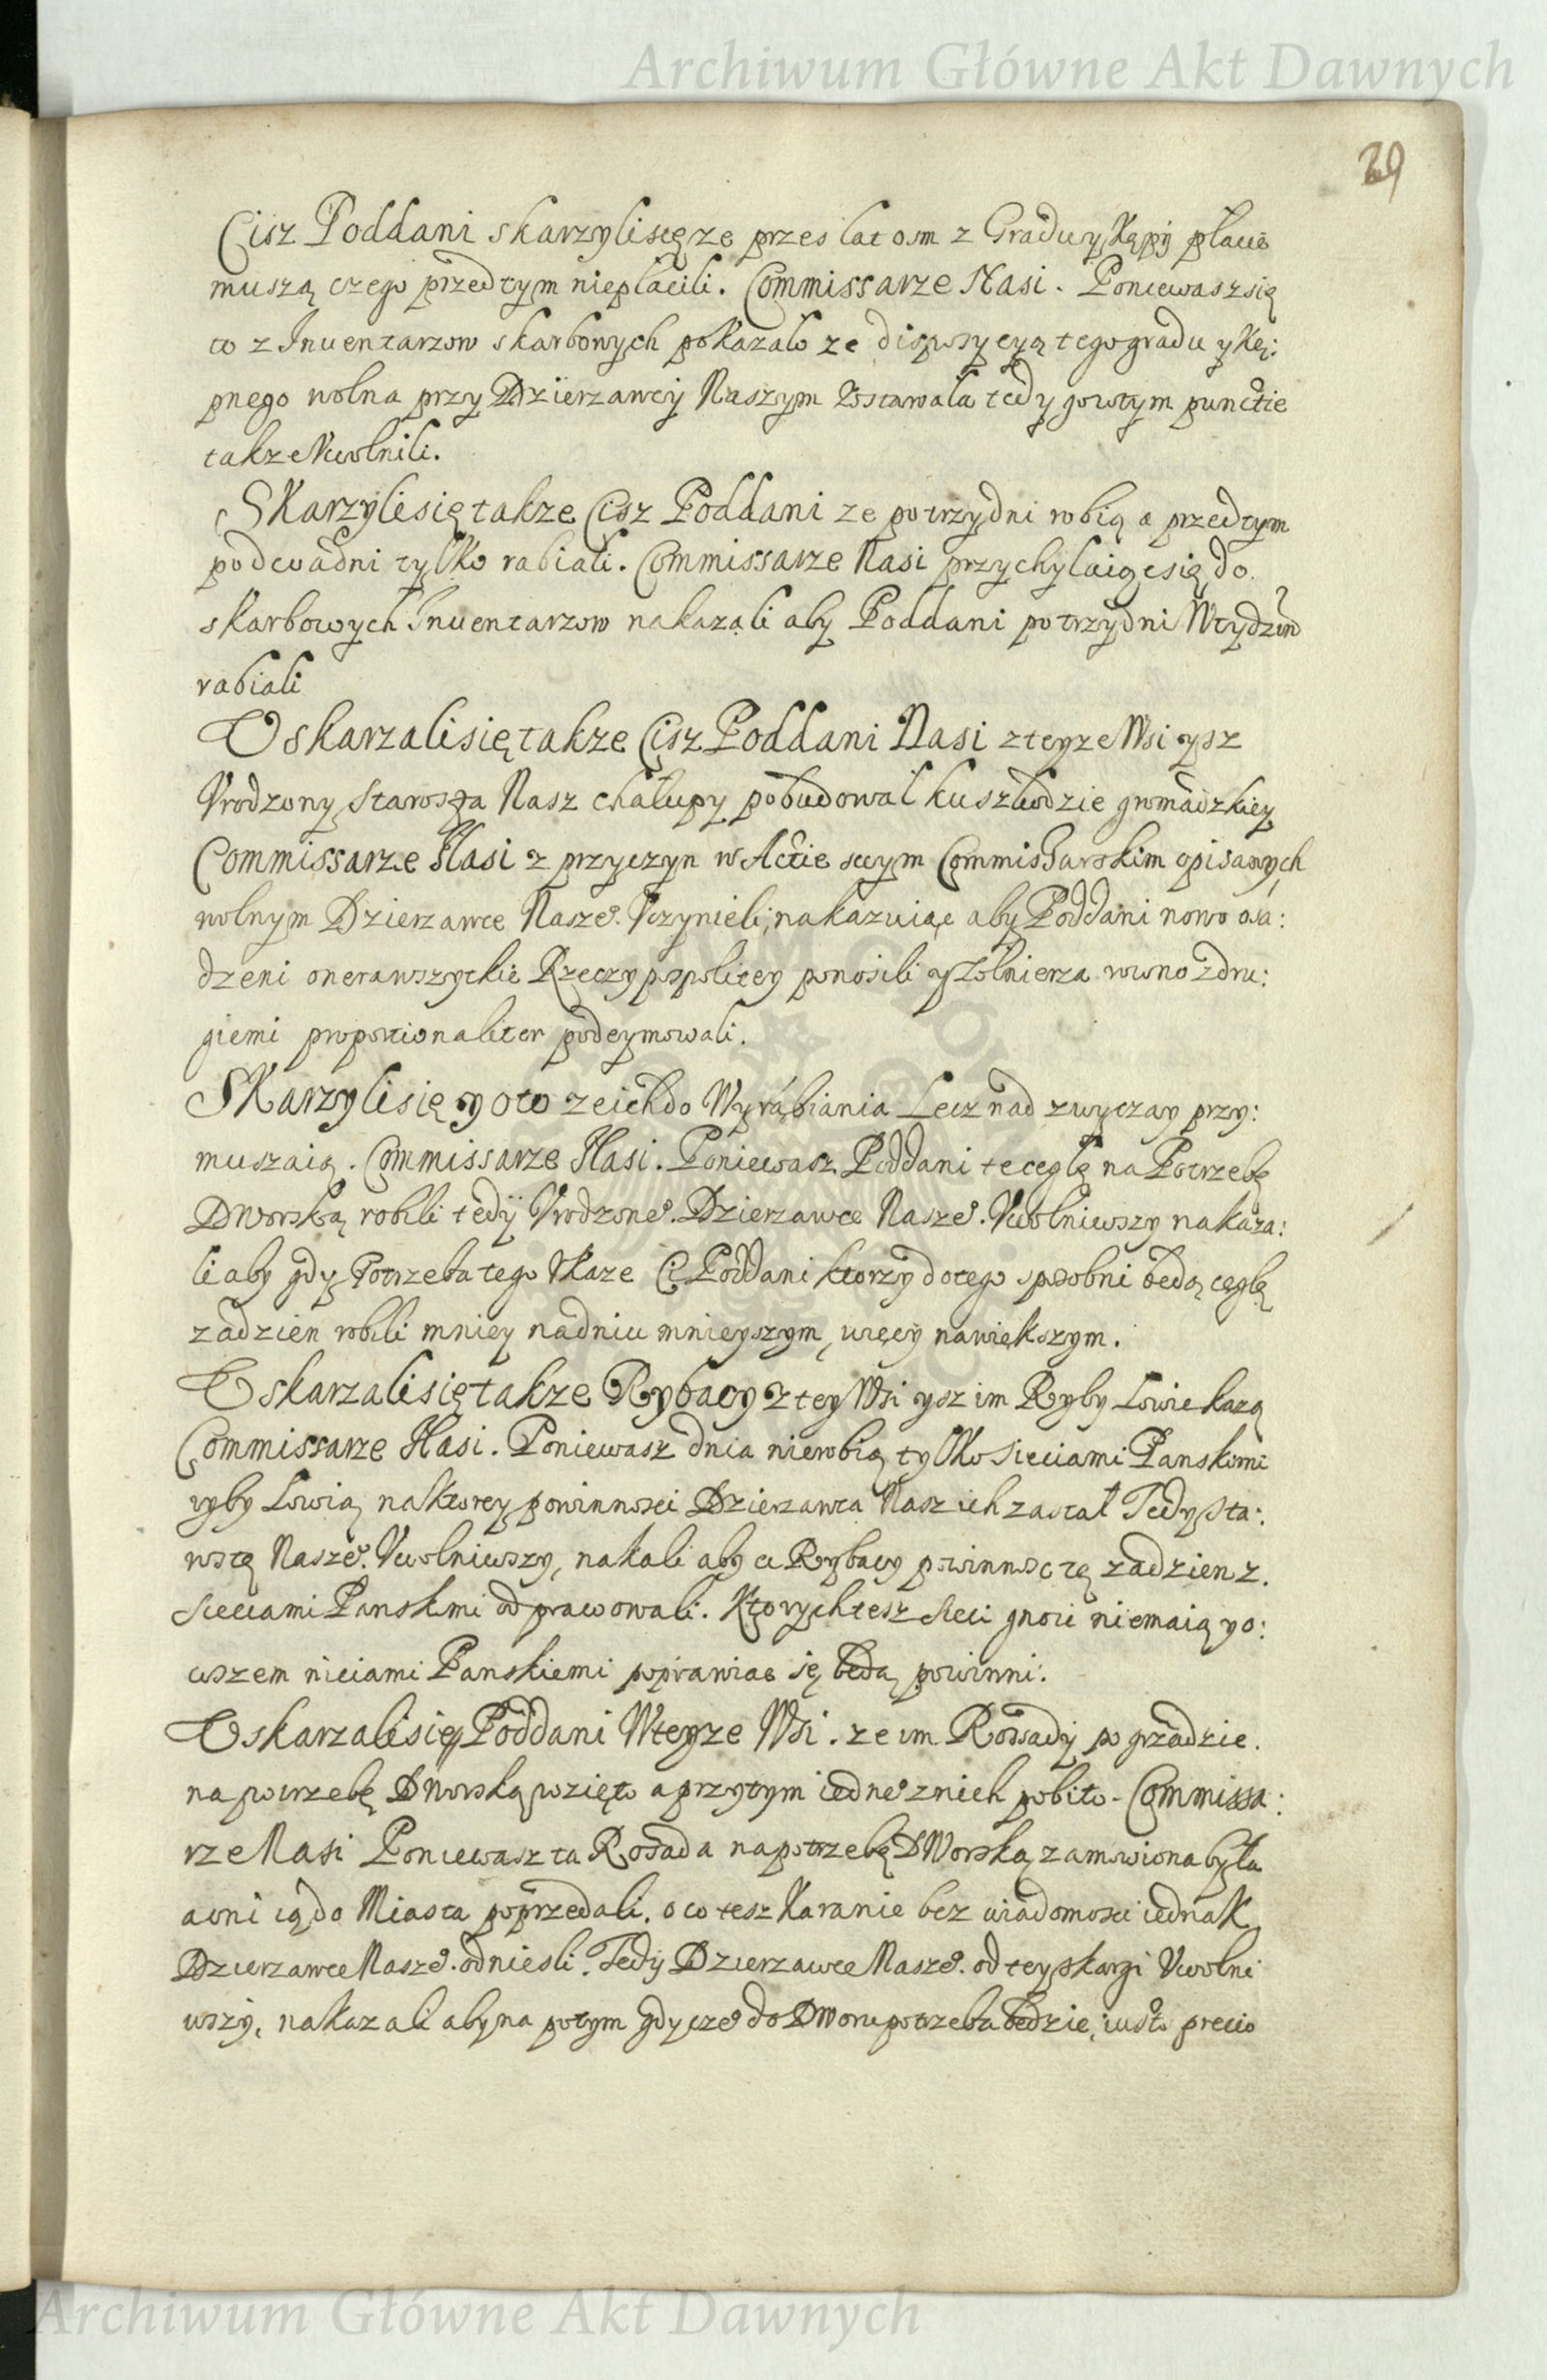 Archiwum Główne Akt Dawnych
29
Cisz Poddani skarzyli się ze przes lat osm z Gradu y Kępÿ płacić
muszą czego przedtym niepłacili. Commissarze Nasi. Poniewasz się
to z Inuentarzow skarbowych pokazało ze disposycyą tego gradu y Kę:
pnego wolna przy Dzierzawcÿ Naszym Zostawała tedy go w tym punctie
takze Vwolnili.
Skarzyli się takze Cisz Poddani ze po trzy dni robią a przedtym
po dwa dni tylko rabiali. Commissarze Nasi przychylaiąc się do
skarbowych Inuentarzow nakazali aby Poddani po trzy dni W tydzien
rabiali
Vskarzali się takze Cisz Poddani Nasi z teyze Wsi ysz
Vrodzony Starosta Nasz chałupy pobudował ku szkodzie gromadzkiey
Commissarze Nasi z przyczyn w Actie swym Commissarskim opisanych
wolnym Dzierzawce Nasze. Vczynieli, nakazuiąc aby Poddani nowo osa:
dzeni onera wszytkie Rzeczypospolitey ponosili y Zołnierza rowno z dru:
giemi proportionaliter podeymowali.
Skarzyli się y o to ze ich do Wyrabiania Lecz nad zwyczay przy:
muszaią. Commissarze Nasi. Poniewasz Poddani te cegłę na Potrzebę
Dworską robili tedÿ Vrodzone. Dzierzawce Nasze. Vwolniwszy nakaza:
li aby gdy Potrzeba tego Vkaze Ci Poddani ktorzy do tego sposobni będą cegłę
za dzien robili mniey na dniu mnieyszym, więcÿ na większym.
Vskarzali się takze Rybacy z tey Wsi ysz im Ryby Lowić kazą
Commissarze Nasi. Poniewasz dnia nierobią tylko sieciami Panskimi
ryby Lowią na ktorey powinnosci Dzierzawca Nasz ich zastał Tedy Sta:
rostę Nasze. Vwolniwszy, nakali aby ci Rybacy powinnosc tę za dzien z.
Sieciami Panskimi odprawowali. Ktorych tesz Sieci gnoić niemaią yo:
wszem niciami Panskiemi poprawiac ię będą powinni.
Vskarzali się Poddani W teyze Wsi. ze im Rossadÿ po grzadzie.
na potrzebę Dworską wzięto a przytym iedne z nich pobito. Commissa:
rze Nasi Poniewasz ta Rosada na potrzebę Dworską zamowiona była
a oni ią do Miasta poprzedali. o co tesz karanie bez wiadomosci iednak
Dzierzawce Nasze. odniesli. Tedÿ Dzierzawce Nasze. od tey skargi Vwolni
wszÿ, nakazali aby na potym gdy cze do Dworu potrzeba będzie, iusto precio
Archiwum Główne Akt Dawnych